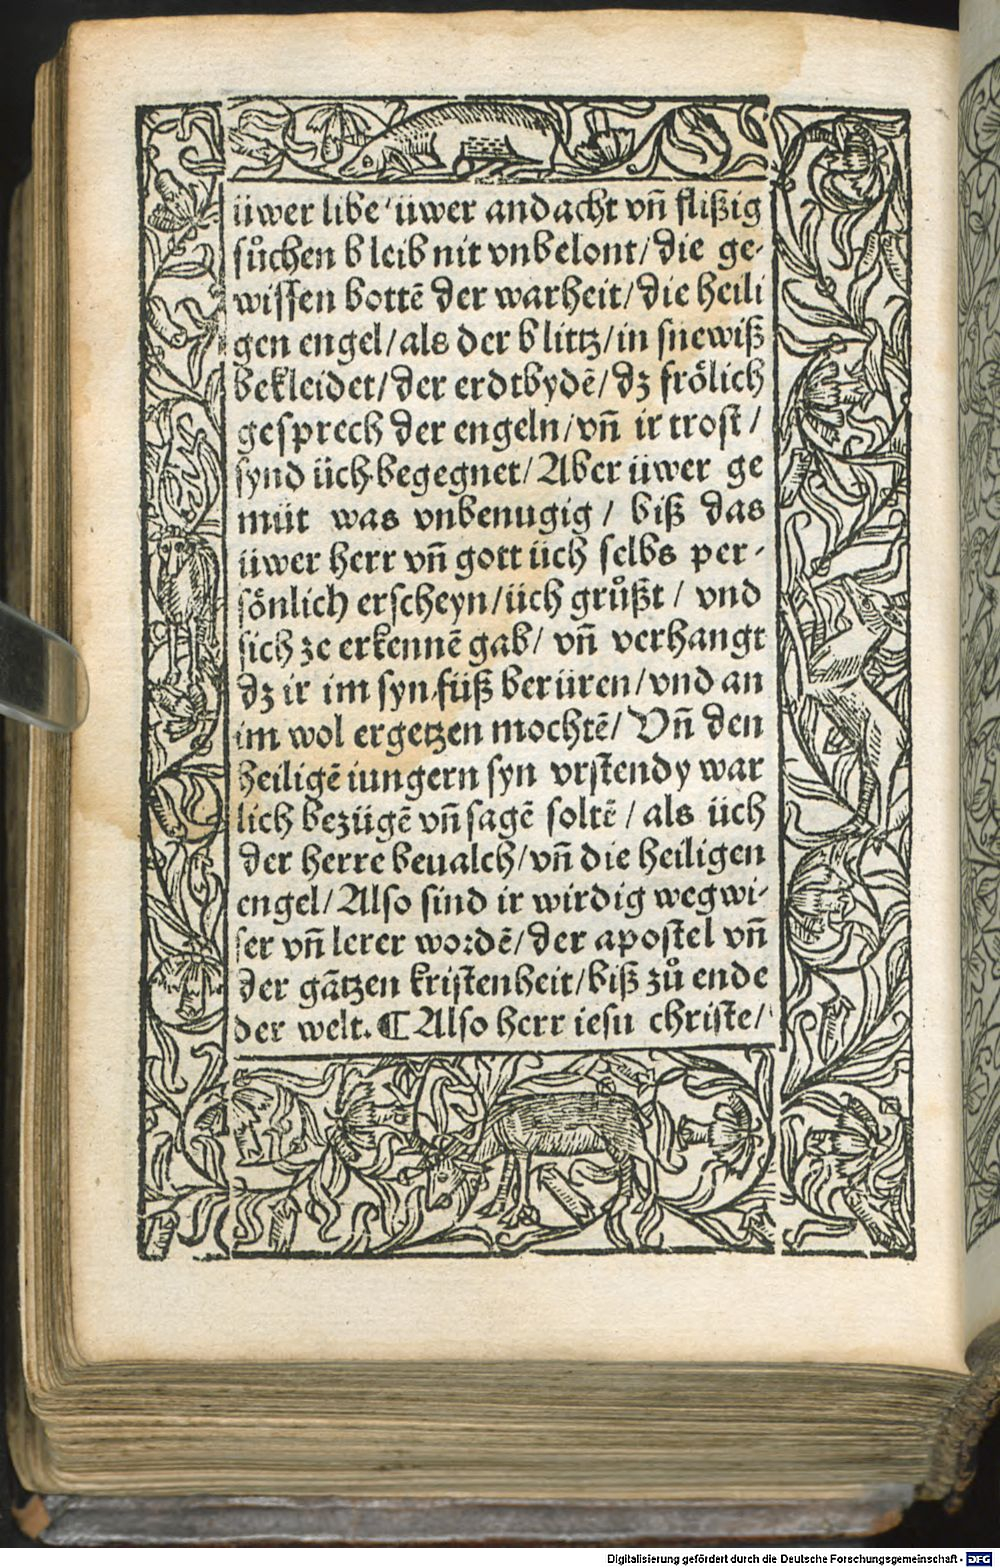 üwer libe / üwer andacht vñ flißig
sůchen bleib nit vnbelont / die ge-
wiſſen bottē der warheit / die heili
gen engel / als der blittz / in ſnewiß
bekleidet / der erdtbydē / dz frölich
geſprech der engeln / vñ ir troſt /
ſynd üch begegnet / Aber üwer ge
müt was vnbenugig / biß das
üwer herr vñ gott üch ſelbs per-
ſönlich erſcheyn / üch grůßt / vnd
ſich ze erkennē gab / vñ verhangt
dz ir im ſyn füß berüren / vnd an
im wol ergetzen mochtē / Vñ den
heiligē iungern ſyn vrſtendy war
lich bezügē vñ ſagē ſoltē / als üch
der herre beualch / vñ die heiligen
engel / Alſo ſind ir wirdig wegwi-
ſer vñ lerer wordē / der apoſtel vñ
der gātzen kriſtenheit / biß zů ende
der welt. ¶ Alſo herr ieſu chriſte /
Digitalisierung gefördert durch die Deutsche Forschungsgemeinschaft - DFG